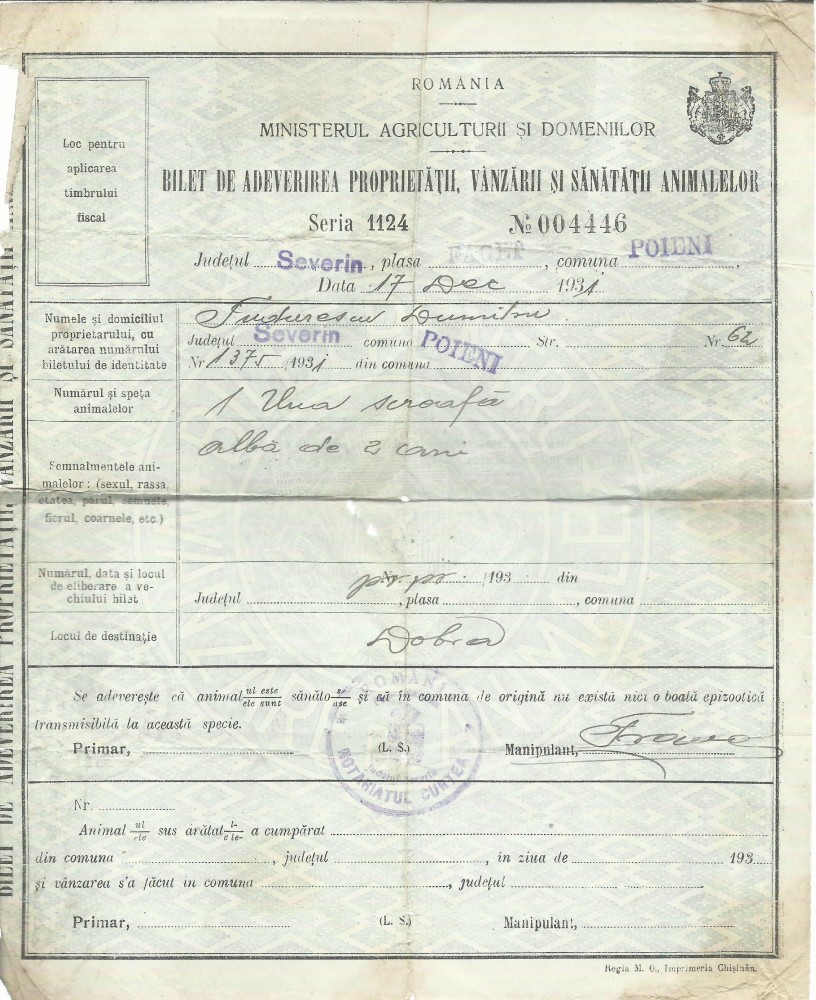 ROMÂNIA
MINISTERUL AGRICULTURII ȘI DOMENIILOR
BILET DE ADEVERIREA PROPRIETĂȚII, VÂNZĂRII ȘI SĂNĂTĂȚII ANIMALELOR
Loc pentru
aplicarea
timbrului
fiscal
Seria 1124 № 004446
Județul Severin, plasa FAGET, comuna POIENI,
Data 17 Dec 1931
Numele și domiciliul
proprietarului, cu
arătarea numărului
biletului de identitate
Tudurescu Dumitru
Județul Severin comuna POIENI Str. Nr. 62
Nr 1375 /1931 din comuna
Numărul și speța
animalelor
1 Una scroafă
Semnalmentele ani-
malelor : (sexul, rassa,
etatea, părul, semnele,
fierul, coarnele, etc.)
albă de 2 ani
Numărul, data și locul
de eliberare a ve-
chiului bilet
Nr. pr. pr. /193 din
Județul , plasa , comuna
Locul de destinație
Dobra
Se adeverește că animal ul este / ele sunt sănăto s / ase și că în comuna de origină nu există nici o boală epizootică
transmisibilă la această specie.
Primar, (L. S.) Manipulant,
ROMÂNIA
Județul Severin
NOTARIATUL CURTEA
Nr.
Animal ul / ele sus arătat l- / e le- a cumpărat
din comuna , județul , în ziua de 193
și vânzarea s'a făcut in comuna , județul
Primar, (L. S.) Manipulant,
Regia M. O., Imprimeria Chișinău.
BILET DE ADEVERIREA PROPRIETĂȚII, VÂNZĂRII ȘI SĂNĂTĂȚII